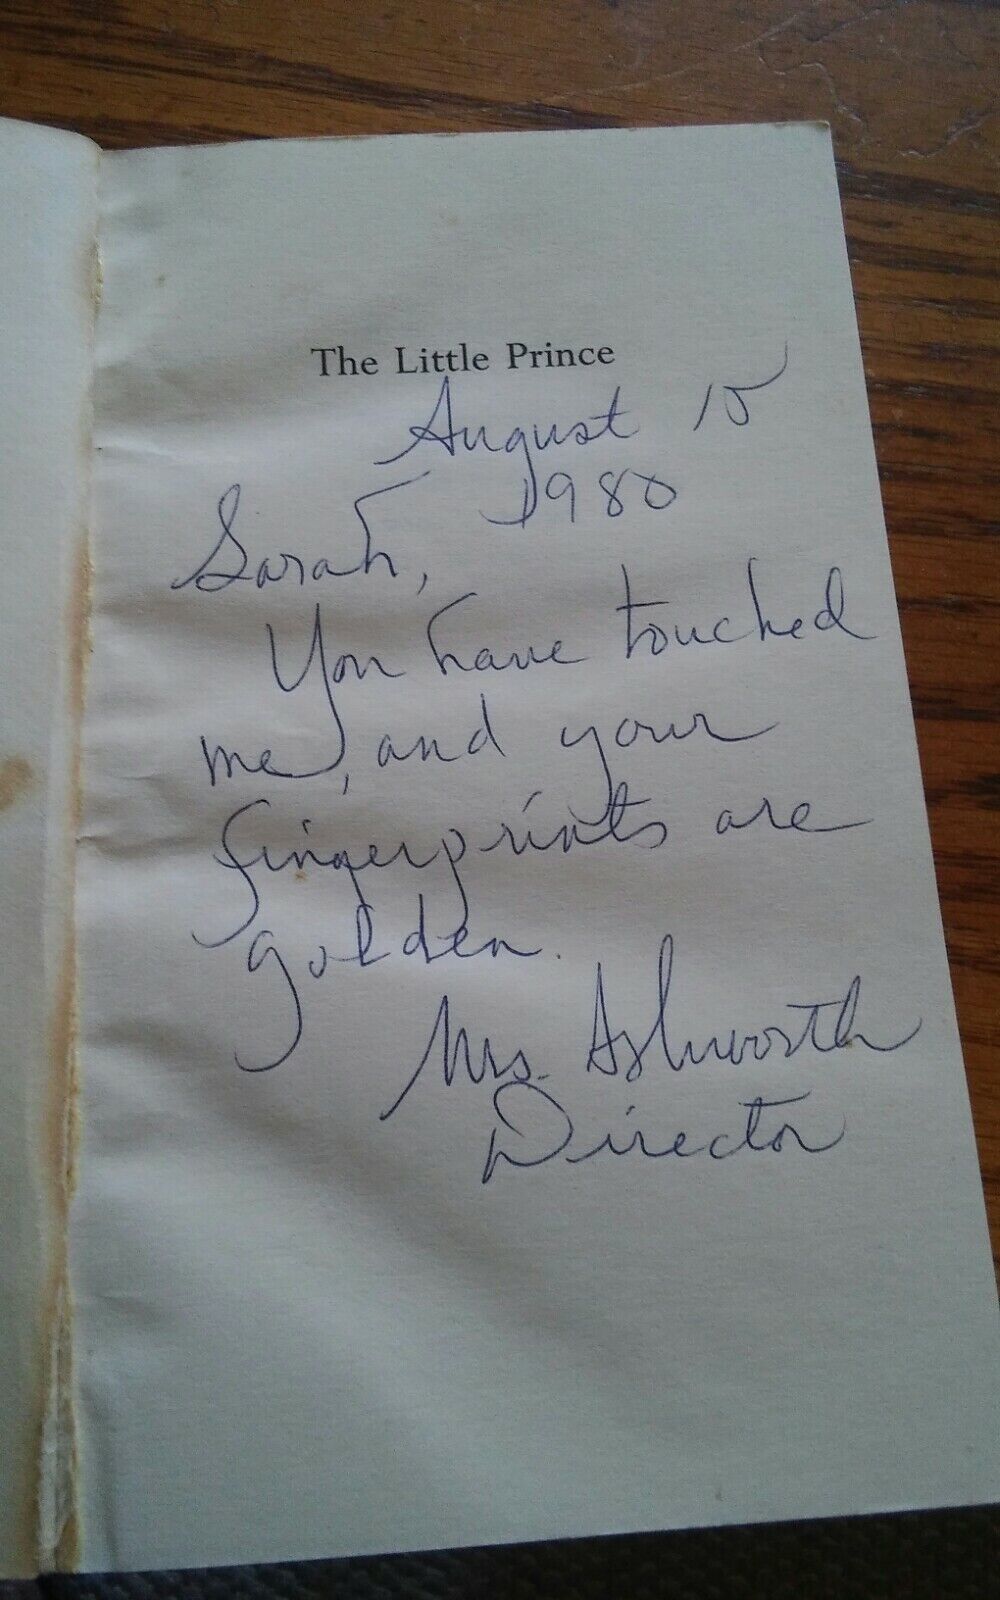 The Little Prince
August 15
1980
Sarah,
You have touched
me, and your
fingerprints are
golden.
Mrs. Ashworth
Director